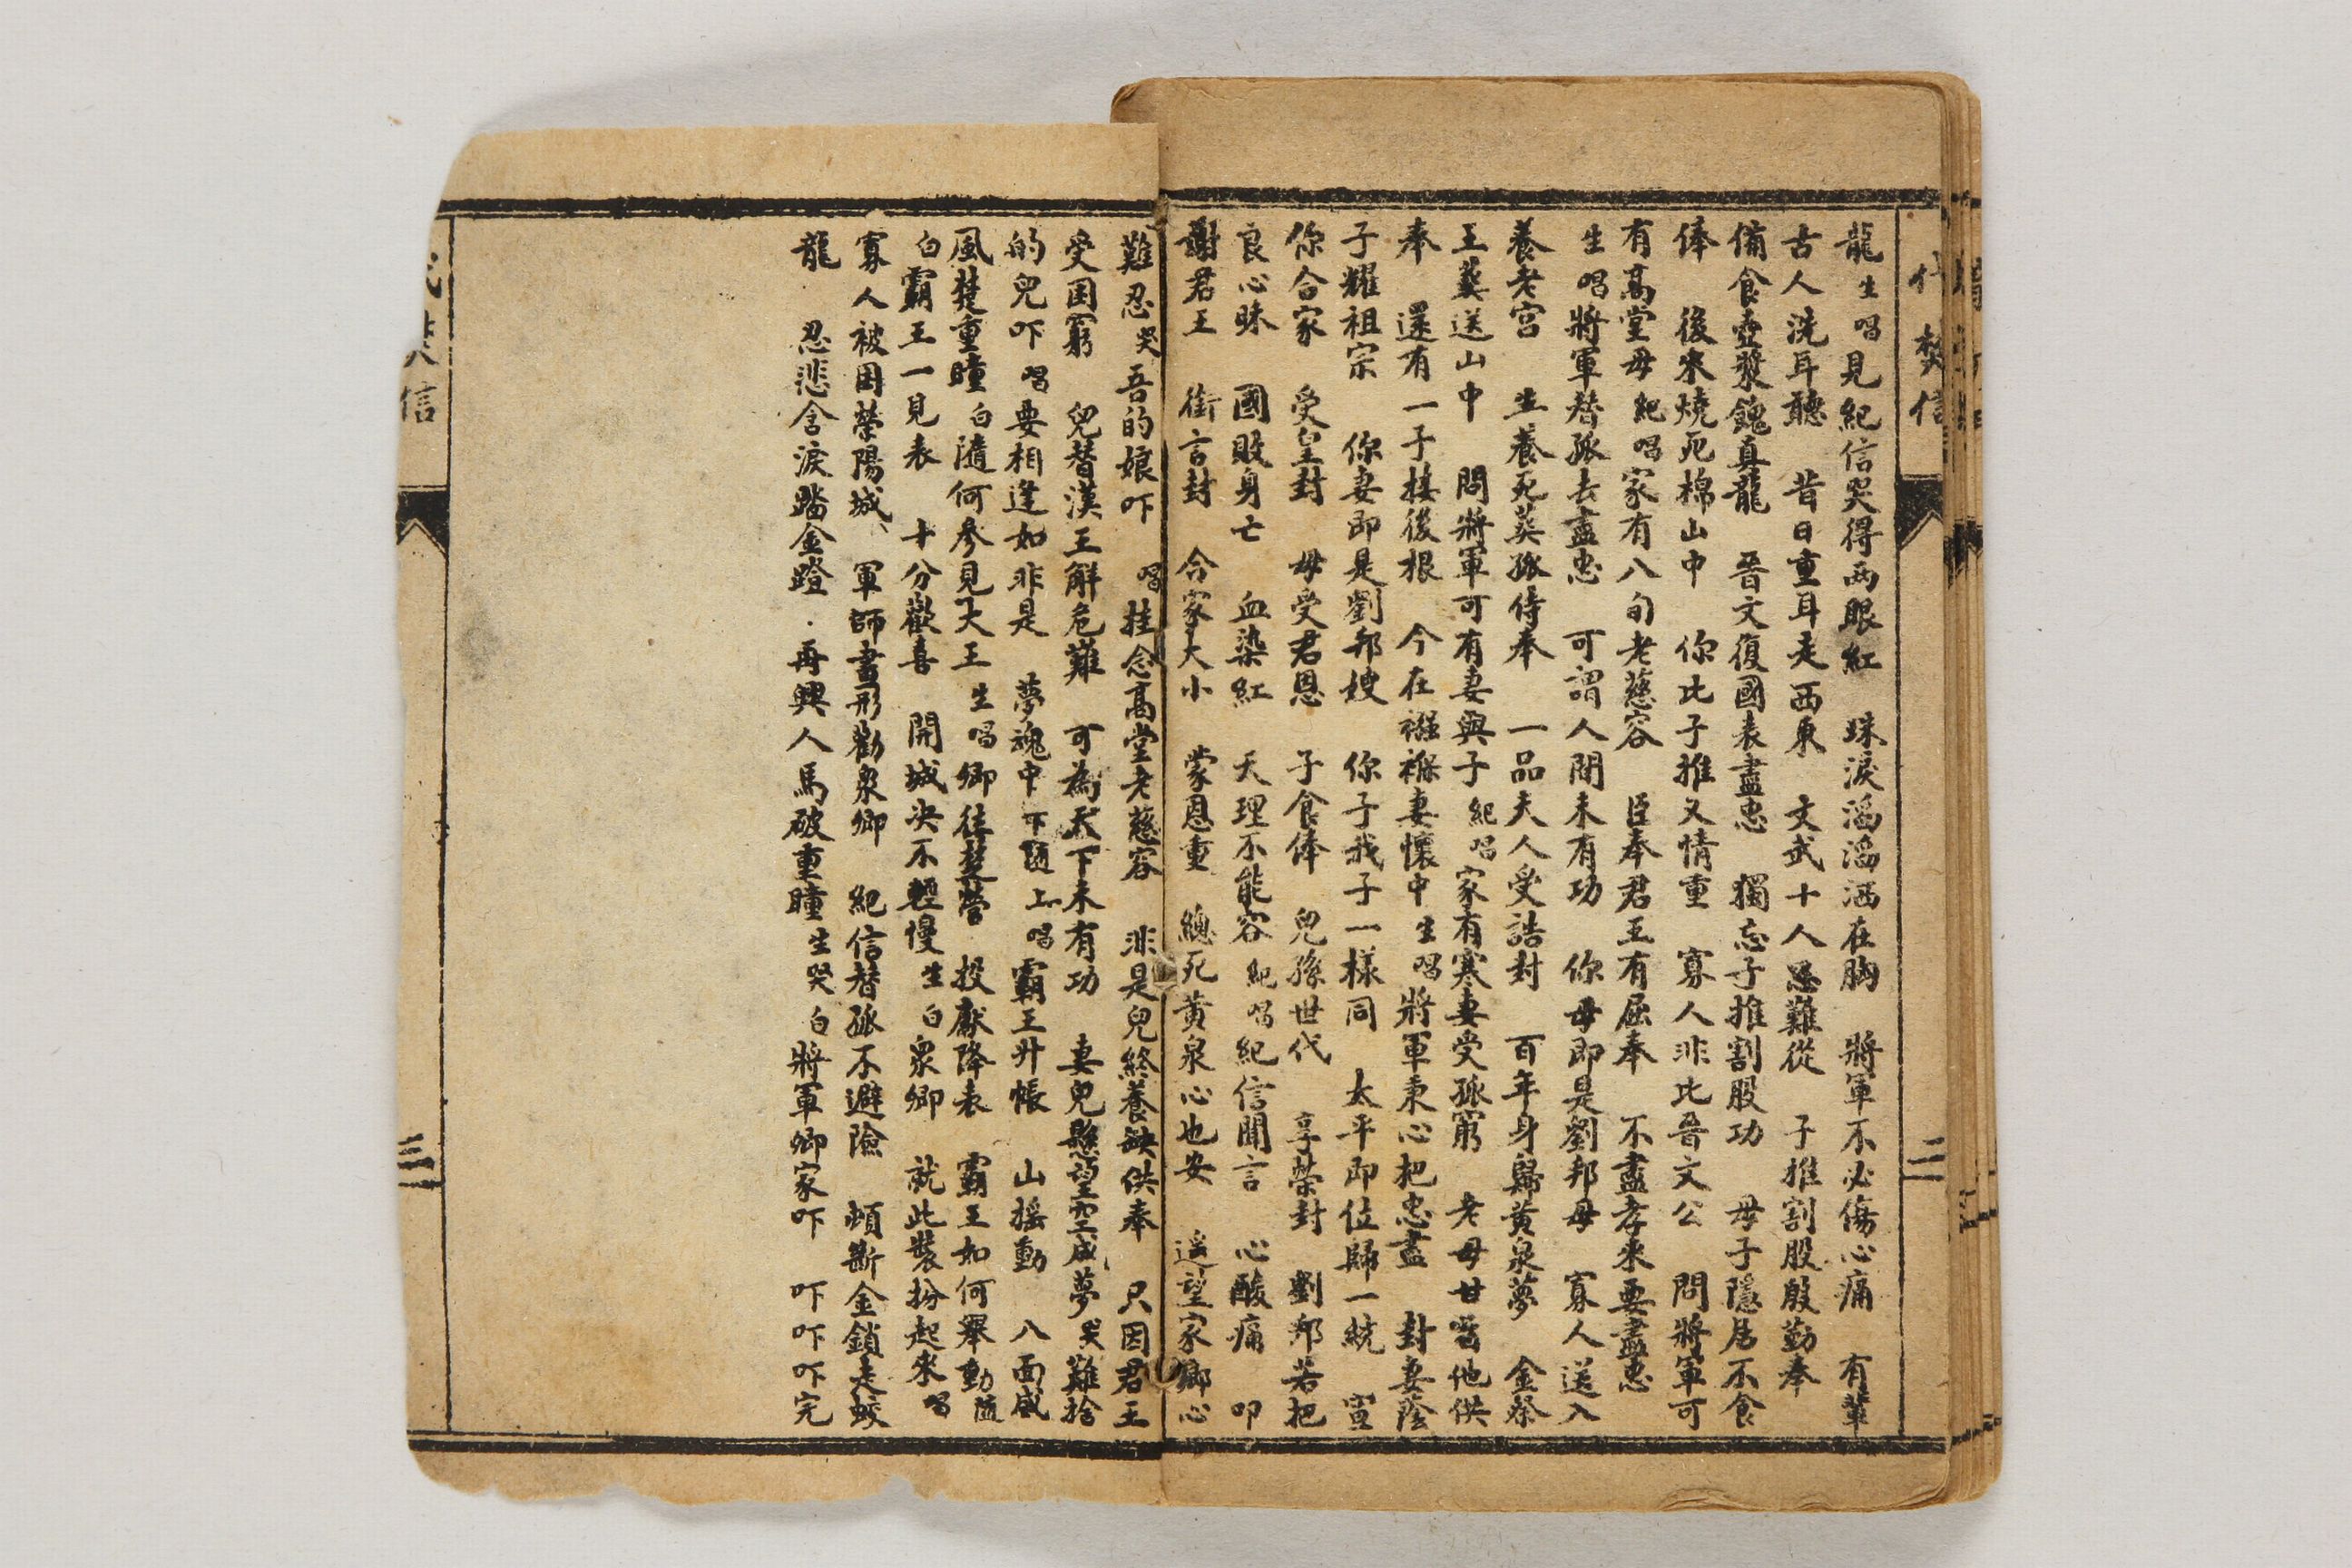 代焚信
二
龍 生唱見紀信哭得兩眼紅 珠淚滔滔洒在胸 將軍不必傷心痛 有輩
古人洗耳聽 昔日重耳走西東 文武十人患難從 子推割股殷勤奉
備食壺漿餽真龍 晉文復國表盡忠 獨忘子推割股功 母子隱居不食
俸 後來燒死棉山中 你比子推又情重 寡人非比晉文公 問將軍可
有高堂母 紀唱家有八旬老慈容 臣奉君王有屈奉 不盡孝來要盡忠
生唱將軍替孤去盡忠 可謂人間未有功 你母即是劉邦母 寡人送入
養老宮 生養死葬孤侍奉 一品夫人受誥封 百年身歸黃泉夢 金祭
王葬送山中 問將軍可有妻與子 紀唱家有寒妻受孤窮 老母甘旨他供
奉 還有一子接後根 今在襁褓妻懷中 生唱將軍秉心把忠盡 封妻蔭
子耀祖宗 你妻即是劉邦嫂 你子我子一樣同 太平即位歸一統 宣
你合家 受皇封 母受君恩 子食俸 兒孫世代 享榮封 劉邦若把
良心昧 國敗身亡 血染紅 天理不能容 紀唱紀信聞言 心酸痛 叩
謝君王 銜言封 合家大小 蒙恩重 總死黃泉心也安 遥望家鄉心
難忍 哭吾的娘吓 唱掛念高堂老慈容 非是兒終養缺供奉 只因君王
受困窮 兒替漢王解危難 可為天下未有功 妻兒懸望空成夢 哭難捨
的兒吓 唱要相逢如非是 夢魂中 下隨上唱霸王升帳 山搖動 八面威
風楚重瞳 白隨何參見大王 生唱卿往楚營 投獻降表 霸王如何舉動 隨
白霸王一見表 十分歡喜 開城決不輕慢 生白衆卿 就此裝扮起來 唱
寡人被困滎陽城 軍師畫形勸衆卿 紀信替孤不避險 頓斷金鎖走蛟
龍 忍悲含淚踏金蹬 再興人馬破重瞳 生哭白將軍卿家吓 吓吓吓完
代焚信
三